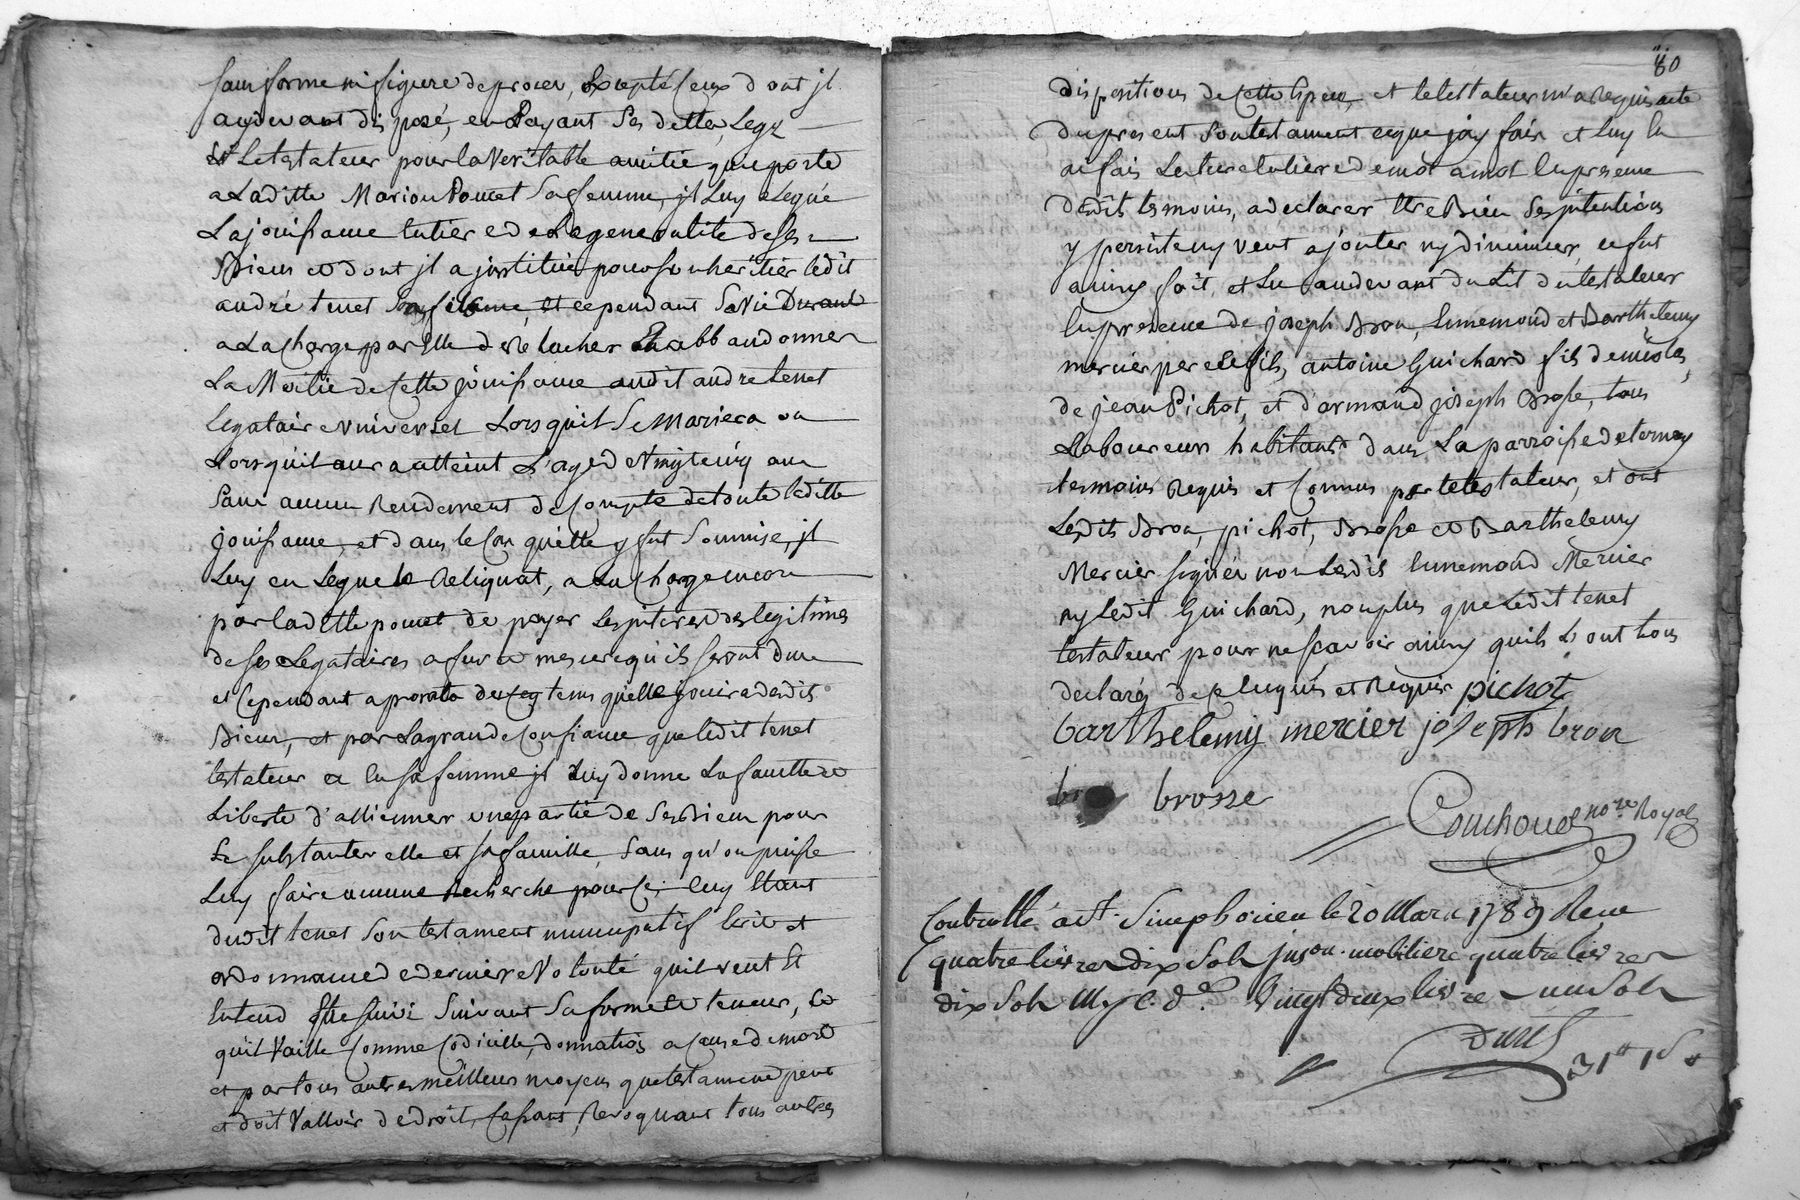 sans forme ni figure de proces, Excepté Ceux dont jl
aydevant disposé, en Payant Ses dettes, Legz
Et Letestateur pour la Veritable amitié que porte
a Laditte Marion Pouet Sa femme, jl Luy a Legué
La jouissance Entiere de La generalité de ses
Biens et dont jl a jnstitué pour son heritier ledit
andré tenet Son fils ainé, Et cependant Sa Vie Durant
a La Charge par Elle de Relacher Et abbandonner
La Moitié de Cette jouissance audit andre tenet
legataire universel Lorsquil Se Mariera ou
Lorsquil aura atteint L'age de Vingt cinq ans
Sans aucun Rendement de Compte de toute laditte
jouissance, et dans le Cas quelle y fut Soumise, jl
Luy en Legue le Reliquat, a La Charge encore
par laditte pouet de payer Les jnterets des legitimes
de ses Legataires a fur et mesure quils seront dus
et Cependant a prorata du tems quelle jouira desdits
Biens, et par La grande Confiance que ledit tenet
testateur a En sa femme jl Luy donne La faculté et
Liberté d'allienner une partie de Ses Biens pour
Se substanter elle et sa famille, Sans qu'on puisse
Luy faire aucune Recherche pour Ce; Cuy Etant
dudit tenet Son testament nuncupatif Ecrit et
ordonnance de derniere Volonté quil veut Et
Entend Etre suivi Suivant Sa forme Et teneur, Et
quil Vaille Comme Codicille, donnation a Cause de mort
et par tous autres meilleurs moyens que testament peut
et doit Valloir de droit, Cassant, Revoquant tous autres
80
dispositions de Cette Espece, et le testateur m'a Requis acte
du present Son testament ce que jay fait et Luy En
ai fais Lecture Entiere de mot a mot En presence
desdits temoins, a declarer Etre Bien Ses jntentions
y persiste ny veut ajouter ny diminuer, ce fut
ainsy fait et Lu audevant du Lit du testateur
En presence de joseph Bron, Ennemond et Barthelemy
mercier pere et fils, antoine Guichard fils de nicolas,
de jean Pichot, et d'armand joseph Brosse, tous
Laboureurs habitants dans La parroisse de ternay
temoins Requis et Connus par le testateur, et ont
Lesdits Bron, pichot, Brosse et Barthelemy
Mercier signés non Lesdits Ennemond Mercier
ny Ledit Guichard, non plus que Ledit tenet
testateur pour ne scavoir ainsy quils L'ont tous
declarés de Ce Enquis et Requis pichot
barthelemy mercier joseph bron
brosse
Couchoud nore Royal
Controllé a St. Simphorien le 20 Mars 1789 Recu
quatre livres dix Sols jnson. mobiliere quatre livres
dix Sols Vingt deux livres un Sols
31tt 1s